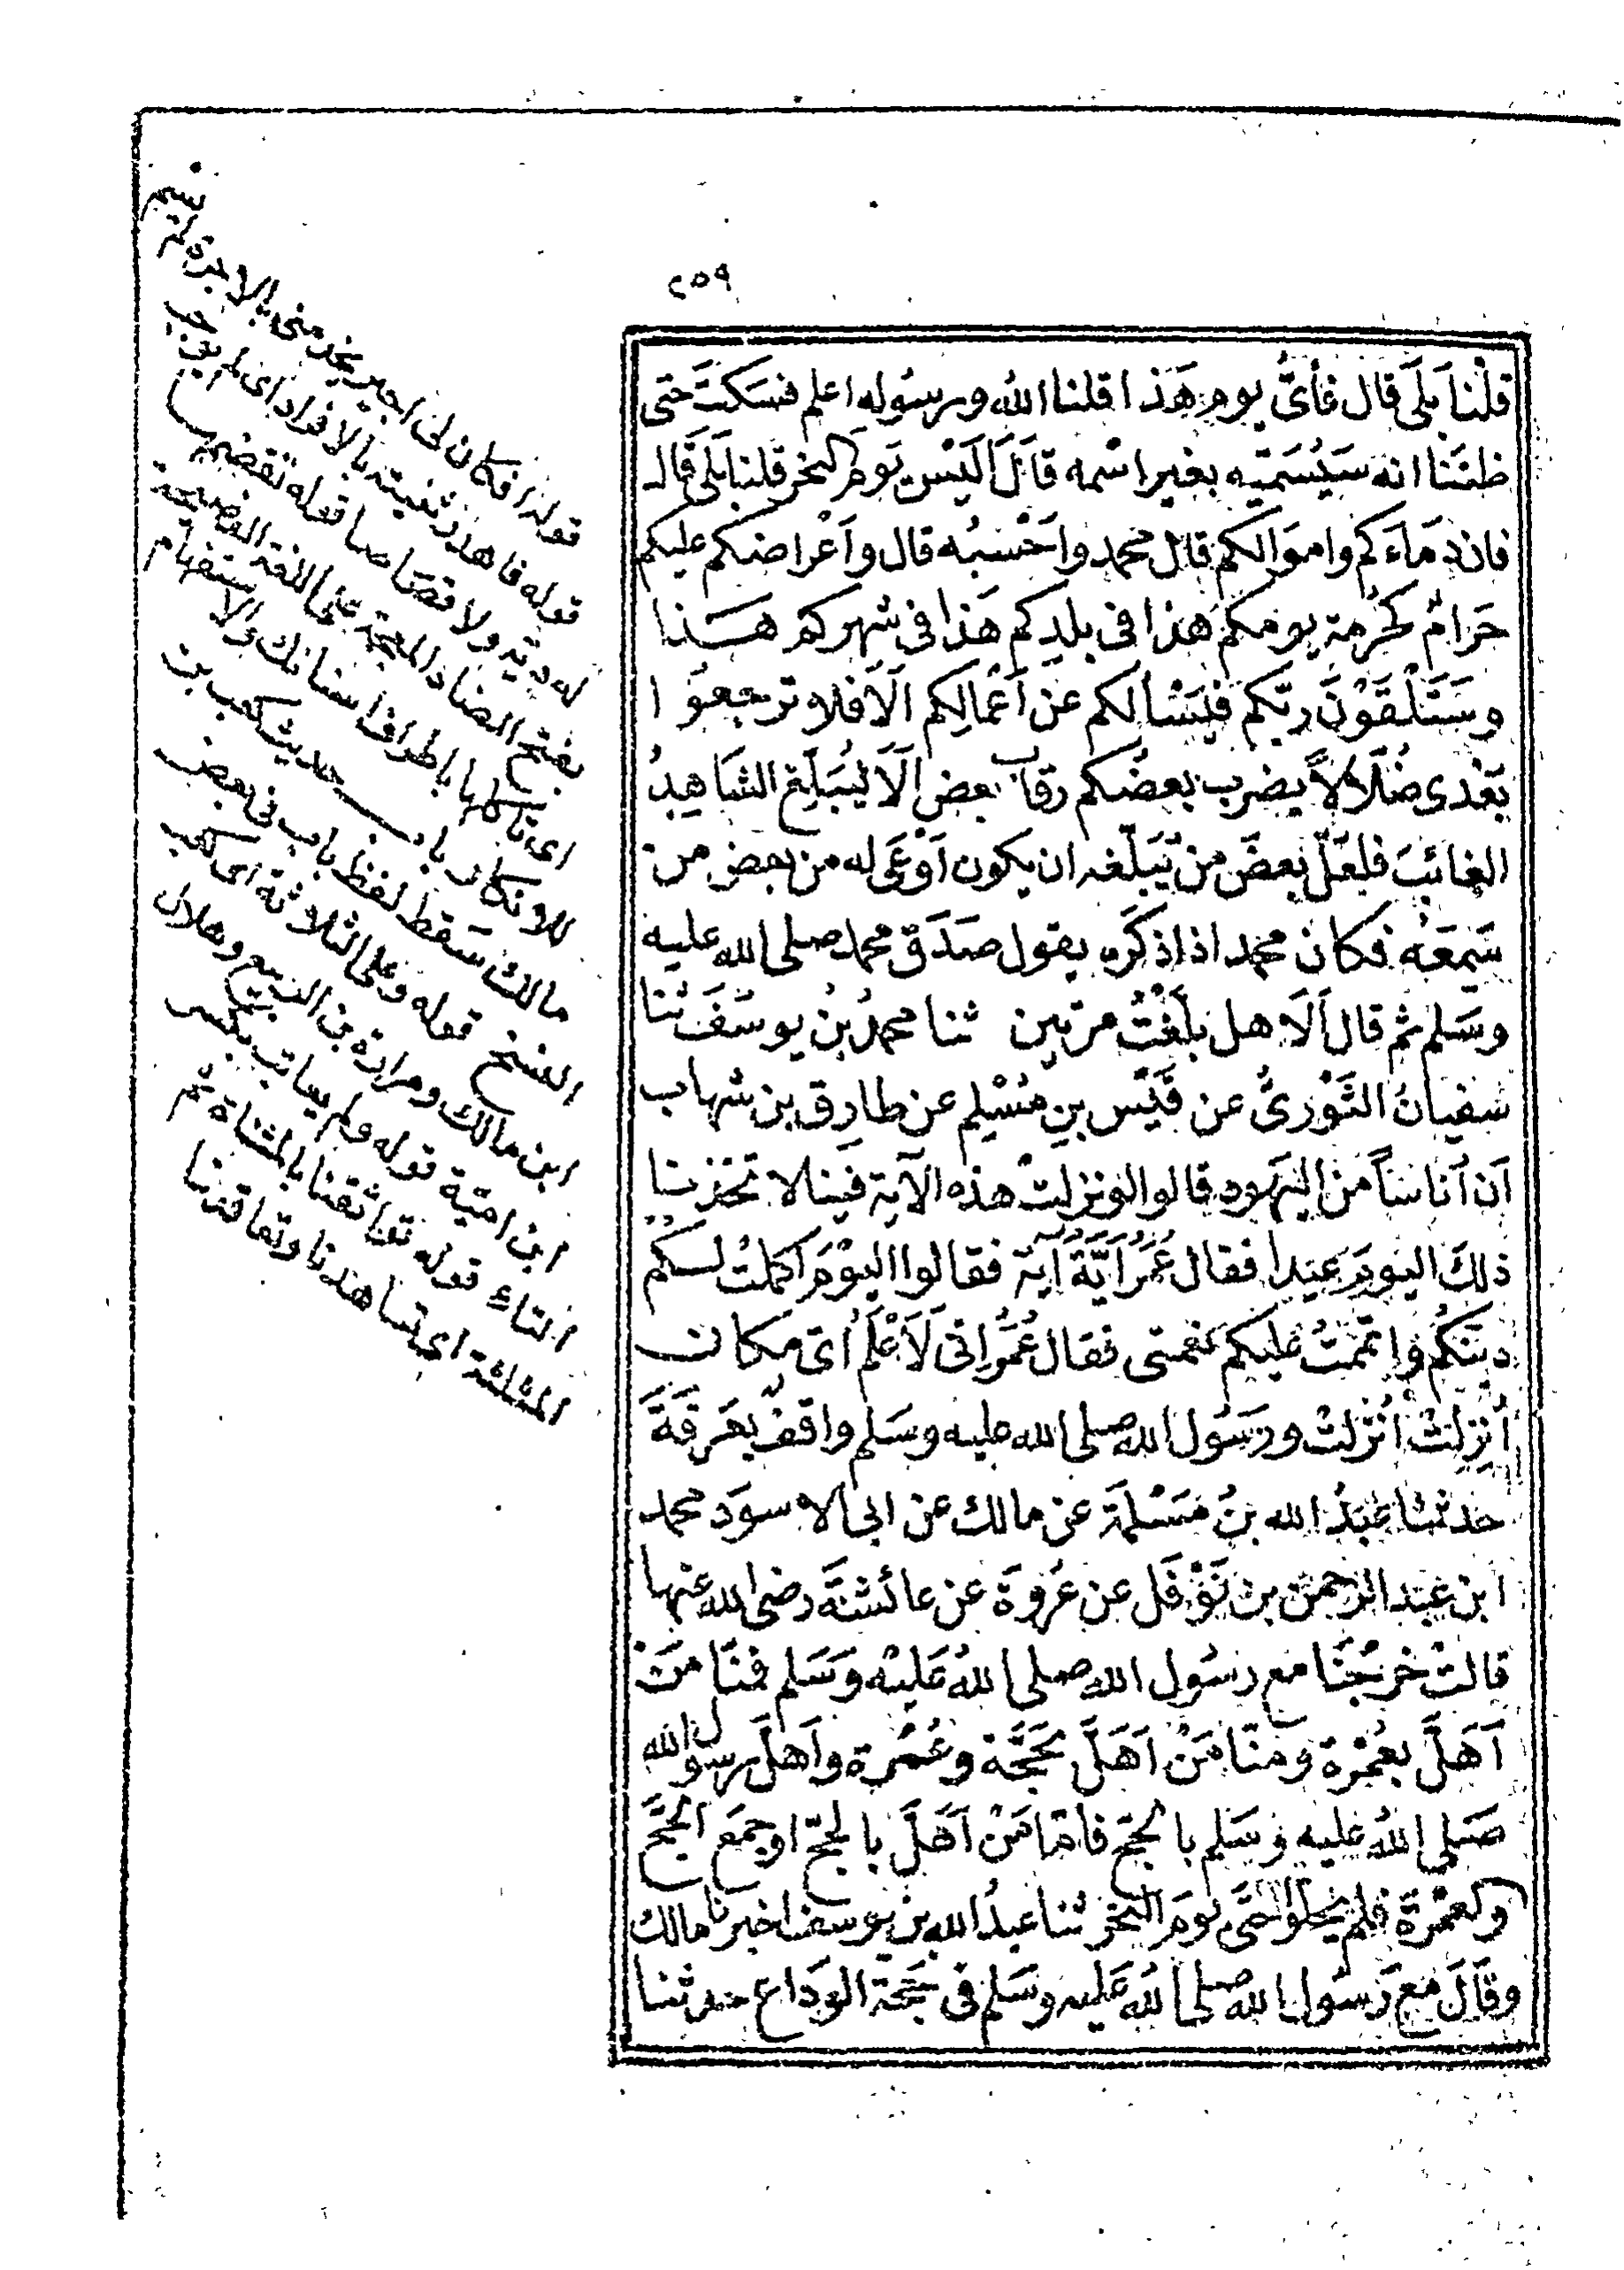 ٢٥٩
قلْنا بَلَى قال فأىُّ يوم هَذا قلنا الله ورسُوله اعلم فسَكتَ حَتى
ظنَنا انه سَيُسَمّيه بغير اسْمه قالَ اَلَيْس يَومَ النحر قلنا بَلَى قَال
فان دمَاءَكم وامْوَالكم قال محمد وَاَحْسبُه قال وأعْراضكم عليكم
حَرَامٌ كحُرمة يومكم هذا فى بلدِكم هَذا فى شهركم هذا
وسَتَلْقَوْنَ رَبّكم فيَسْألكم عن اَعْمالِكم اَلَا فلا ترجعوا
بَعْدى ضُلّالاً يضرب بعضُكم رقابَ بعض اَلَا ليُبَلِّغ الشاهِدُ
الغائبَ فلعَلّ بَعضَ من يُبَلَّغه ان يكون اَوْعَى له من بعض من
سَمعَه فكان محمد اذا ذكرَه يقول صَدَق محمد صلى الله عليه
وسَلم ثم قال اَلَا هل بلّغْتُ مرتين ثنا محمدُ بنُ يوسُفَ ثنا
سُفيانُ الثّوْرىُّ عن قَيْس بنِ مُسْلِم عن طارِق بن شهاب
اَن اُناسًا من اليهود قالوا لو نزلت هذه الآية فينا لاتخذنا
ذلكَ اليومَ عيدا فقال عُمَرُ اَيّةُ آيَة فقالوا اليَوْمَ اَكملتُ لكم
دِينَكُم وأتممتُ عليكم نعمتى فقال عُمَرُ اِنى لَاَعْلَمُ اَىَّ مكان
اُنزِلتْ اُنْزلتْ ورَسُول الله صلى الله عليه وسَلم واقفٌ بعَرفَةَ
حَدثنا عَبدُ الله بنُ مَسْلمَة عن مالك عن ابى الاسوَد محمد
ابن عَبْد الرحمن بن نَوْفَل عن عُروَةَ عن عائشةَ رضى الله عنها
قالتْ خرجْنَا مع رَسُول الله صلى اللهُ عَليْه وَسَلم فمنّا مَنْ
اَهَلَّ بعُمْرة ومنّا مَنْ اَهَلَّ بحَجَّة وعُمْرة واَهلَّ رسول الله
صَلى اللهُ عليه وسَلم بالحَجّ فامّا مَنْ اَهَلَّ بالحَجّ او جمَع الحَجَّ
والعمْرةَ فلم يَحلّوا حَتّى يَومَ النحر ثنا عبدُ الله بن يوسف اخبرنا مالك
وقَالَ مع رَسُول الله صلى اللهُ عَليه وسَلم فى حَجّة الوَدَاع حدثنا
قوله فكان لى اجير يخدمنى بالاجرة لم يسم
قوله فاهدر ثنيته بالافراد اى لم يوجب
له دية ولا قصاصا قوله تقضمها
بفتح الضاد المعجمة على اللغة الفصيحة
اى تأكلها باطراف اسنانك والاستفهام
للانكار باب حديث كعب بن
مالك سقط لفظ باب فى بعض
النسخ قوله وعلى الثلاثة اى كعب
ابن مالك ومرارة بن الربيع وهلال
ابن امية قوله ولم يعاتب بكسر
التاء قوله تواثقنا بالمثناة ثم
المثلثة اى تعاهدنا وتعاقدنا